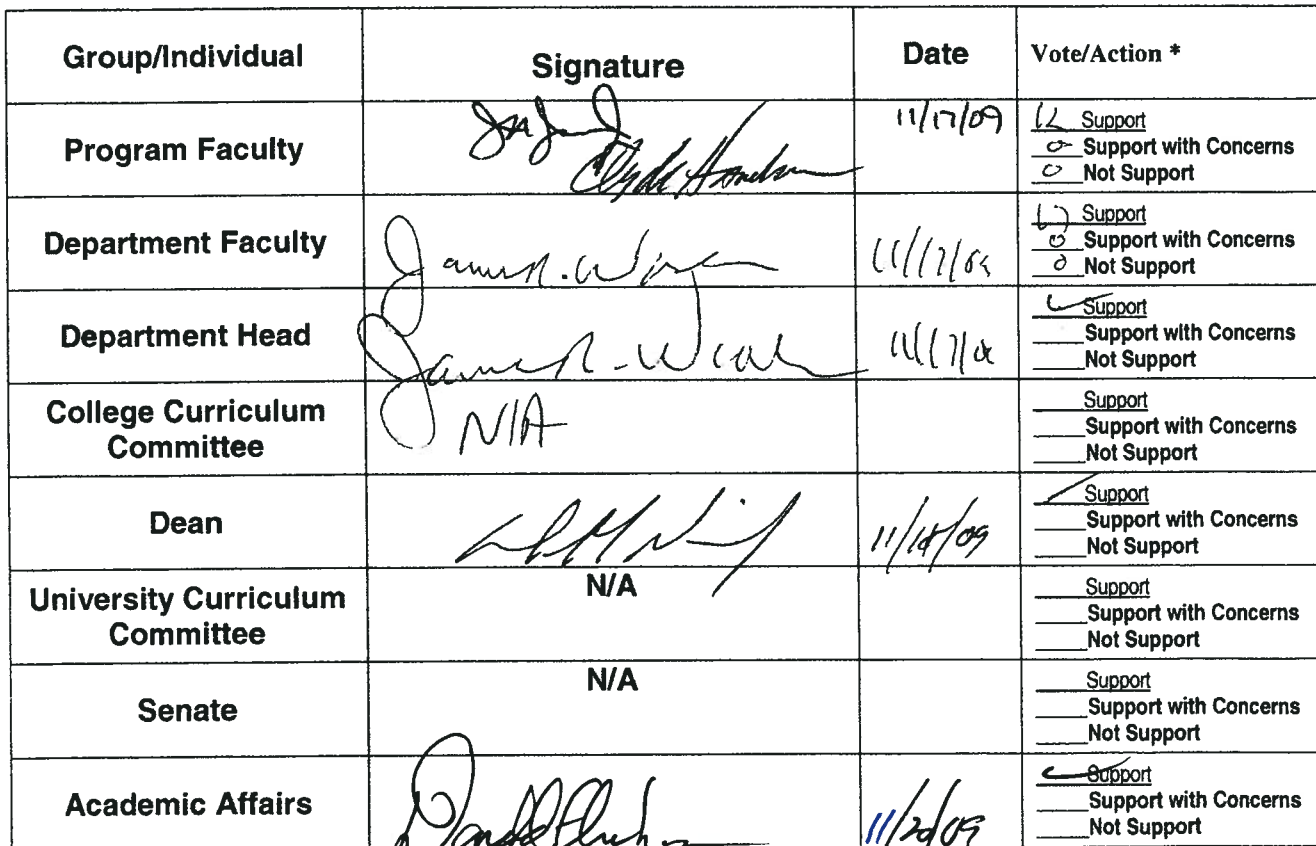 Group/Individual Signature Date Vote/Action *
Program Faculty 11/17/09 12 Support
0 Support with Concerns
0 Not Support
Clyde
Department Faculty James R. 11/17/09 Support
0 Support with Concerns
0 Not Support
Department Head James R. 11/17/ Support
Support with Concerns
Not Support
College Curriculum
Committee
N/A
Support
Support with Concerns
Not Support
Dean 11/18/09 Support
Support with Concerns
Not Support
University Curriculum
Committee
N/A
Support
Support with Concerns
Not Support
Senate
N/A
Support
Support with Concerns
Not Support
Academic Affairs 11/20/09 Support
Support with Concerns
Not Support